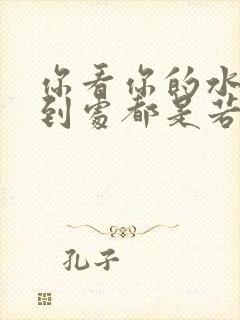 你看你的水
到處都是若
孔子